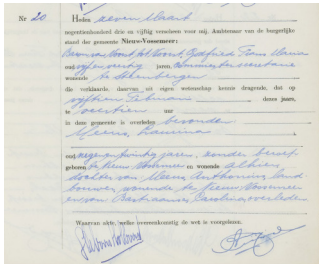 Nr 20
Heden zeven Maart
negentienhonderd drie en vijftig verscheen voor mij, Ambtenaar van de burgerlijke
stand der gemeente Nieuw-Vossemeer:
oud vijf en veertig jaren, commies ter secretarie
wonende te Steenbergen
die verklaarde, daarvan uit eigen wetenschap kennis dragende, dat op
vijftien Februari dezes jaars,
te veertien uur
in deze gemeente is overleden bevonden
Meens, Laurina
oud negen en twintig jaren, zonder beroep
geboren te Nieuw Vossemeer en wonende Aldaar
dochter van Meens, Anthonius, land
bouwer, wonende te Nieuw Vossemeer
en van Bastiaansen, Carolina, overleden
Waarvan akte, welke overeenkomstig de wet is voorgelezen.